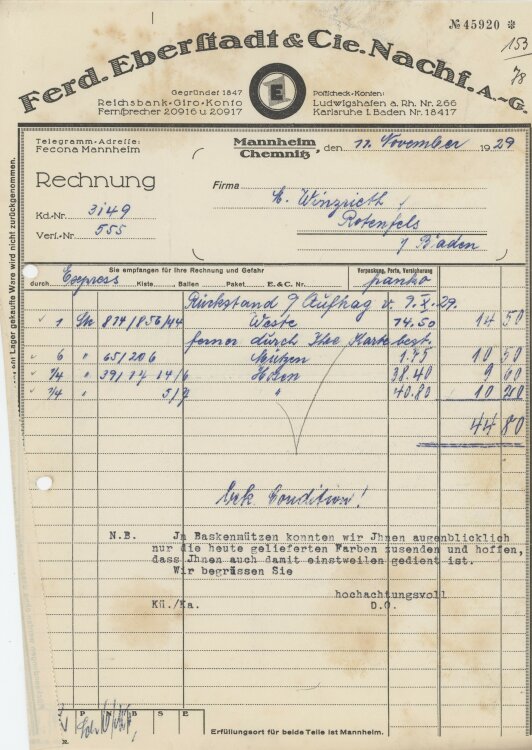 № 45920 *
153
78
Ferd. Eberstadt & Cie. Nachf. A.-G.
Gegründet 1847
Reichsbank-Giro-Konto
Fernsprecher 20916 u. 20917
E
Postscheck-Konten:
Ludwigshafen a. Rh. Nr. 266
Karlsruhe i. Baden Nr. 18417
Telegramm-Adresse:
Fecona Mannheim
Mannheim
Chemnitz, den 11. November 1929
Rechnung
Kd.-Nr. 3149
Verl.-Nr. 555
Firma
E. Wingrieth
Rotenfels
i/ Baden
Sie empfangen für Ihre Rechnung und Gefahr
durch Express Kiste Ballen Paket E. & C. Nr.
Verpackung, Porto, Versicherung
franko
Rückstand a/ Auftrag v. 7.X.29.
1 Stk 874/856/44 Weste 14.50 14 50
ferner durch Ihre Karte best.
6 " 65/206 Mützen 1.75 10 50
3/4 " 39/17 14/6 Hosen 38.40 9 60
3/4 " 5/7 " 40.80 10 20
44 80
Condition!
N.B. In Baskenmützen konnten wir Ihnen augenblicklich
nur die heute gelieferten Farben zusenden und hoffen,
dass Ihnen auch damit einstweilen gedient ist.
Wir begrüssen Sie
hochachtungsvoll
Kü./Ka. D.O.
P N B S E
R.
Erfüllungsort für beide Teile ist Mannheim.
Lager gekaufte Ware wird nicht zurückgenommen.